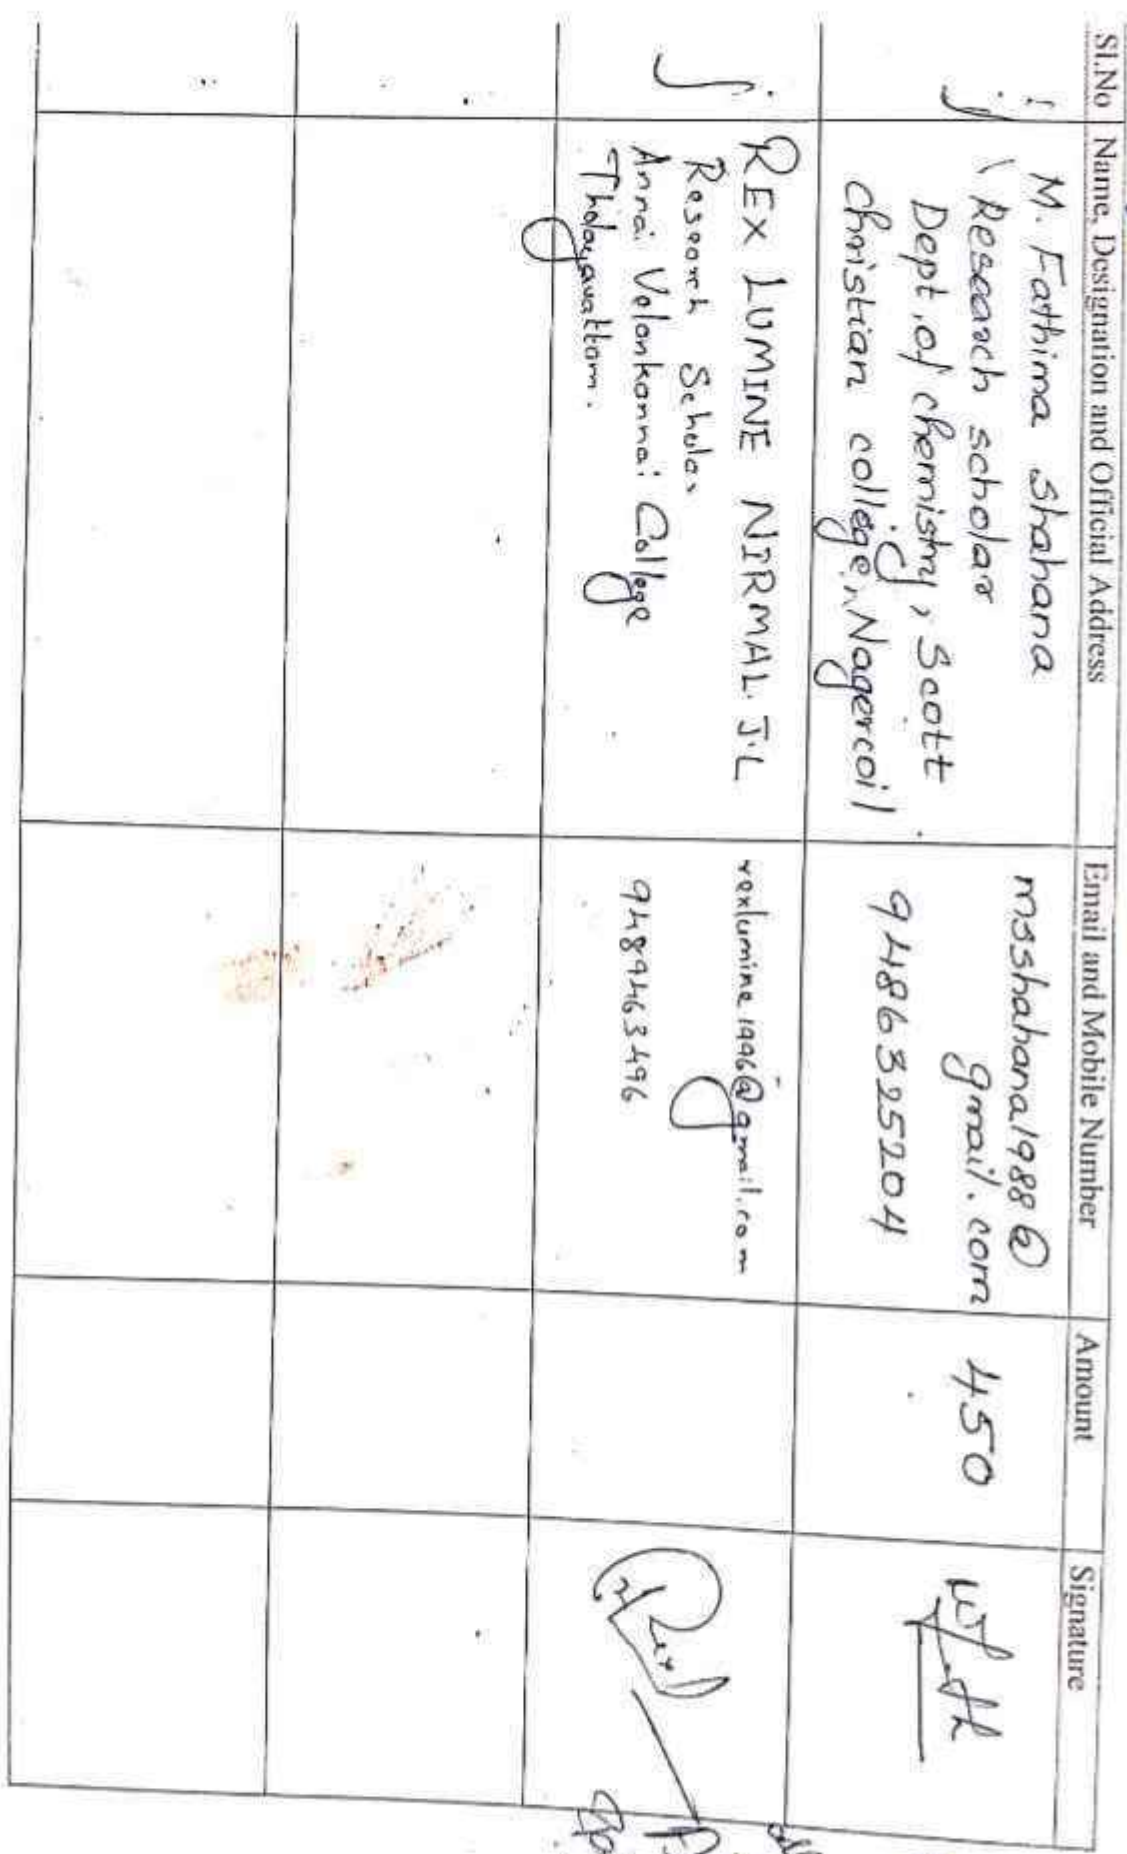 Sl.No Name, Designation and Official Address Email and Mobile Number Amount Signature
M. Fathima Shahana
Research scholar
Dept. of chemistry, Scott
christian college, Nagercoil
msshahana1988@
gmail.com
9486325204
450
REX LUMINE NIRMAL. J.L
Research Scholar
Annai Velankannai College
Tholayavattam.
rexlumine1996@gmail.com
9489463496